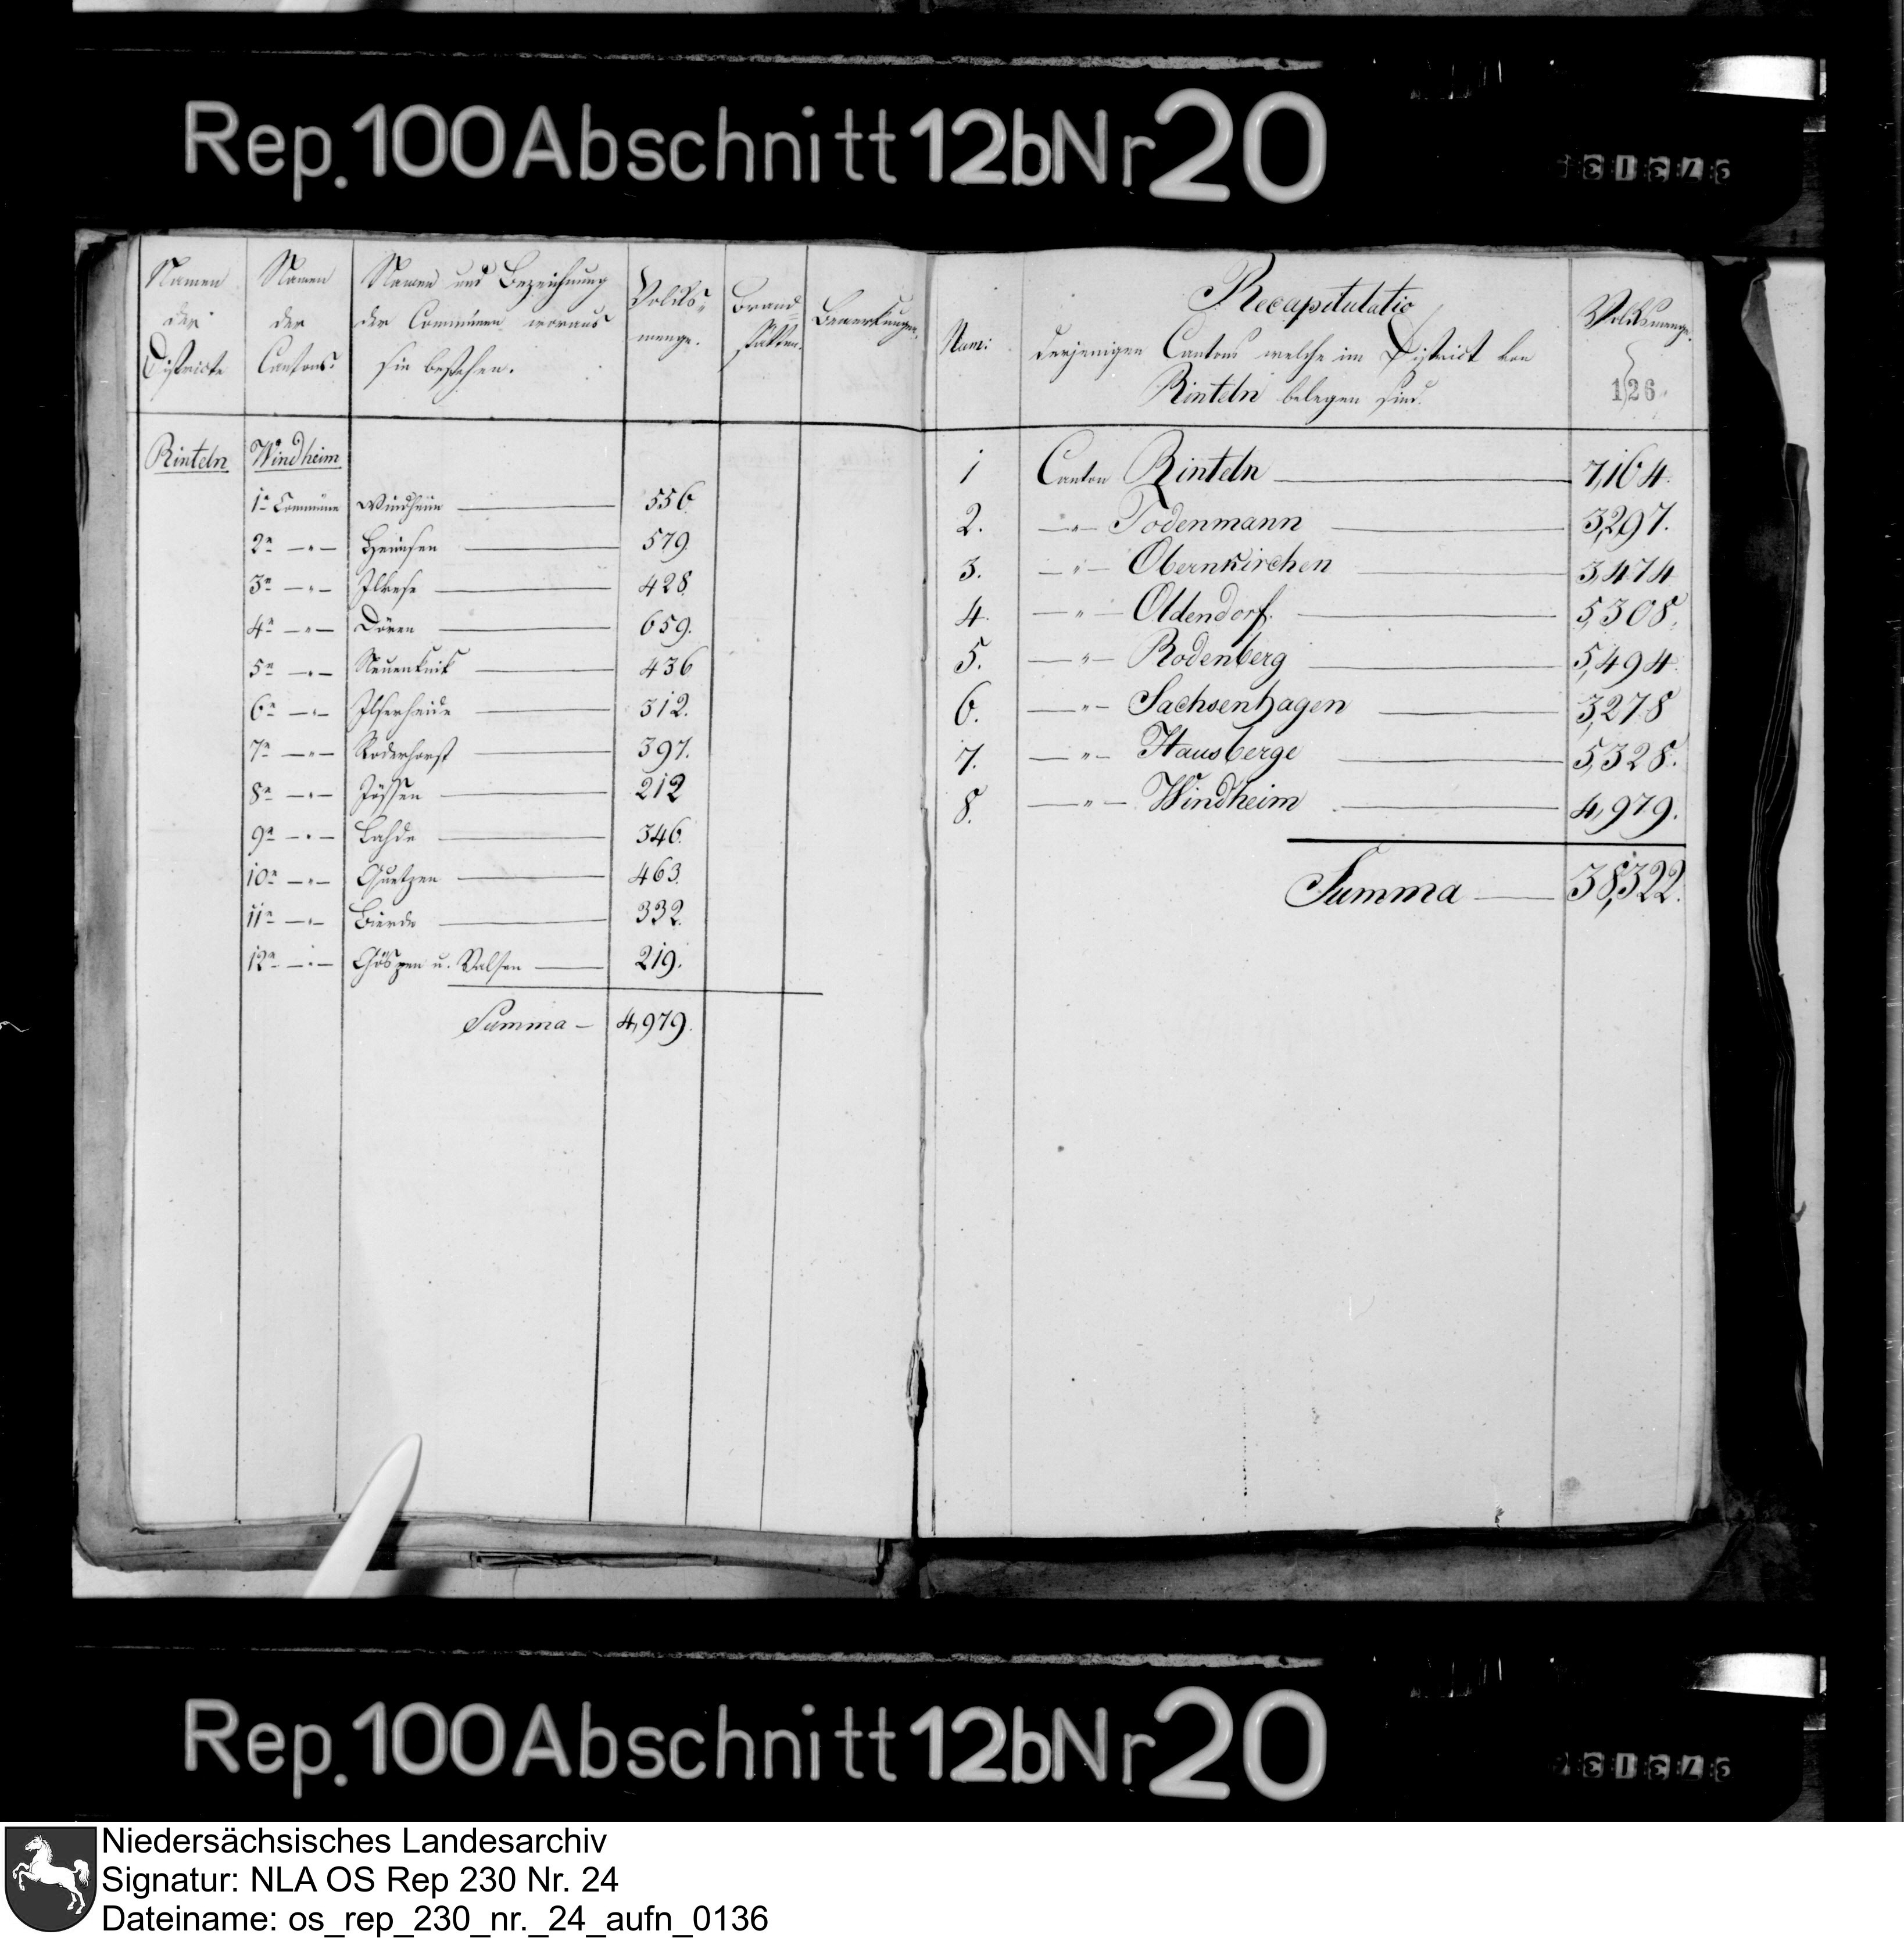 Rep. 100 Abschnitt 12b Nr 20
Namen der Districte
Namen der Cantons.
Namen und Bezeichnung der Communen woraus sie bestehen.
Volks-menge.
Brand-stellen.
Bemerkungen.
Rinteln Windheim
1e Commüne Windheim 556.
2e — " — Heimsen 579.
3e — " — Ilvese 428.
4e — " — Dören 659.
5e — " — Neuenknik 436
6e — " — Ilserheide 312.
7e — " — Raderhorst 397.
8e — " — Jössen 212
9e — " — Lahde 346.
10e — " — Quetzen 463.
11e — " — Bierde 332.
12e — " — Göspen u. 219.
Summa — 4,979.
Recapitulatio
derjenigen Cantons welche im District von
Rinteln belegen sind.
Num:
Volksmenge.
126
1 Canton Rinteln 7,164.
2. — " — Todenmann 3,297.
3. — " — Obernkirchen 3,474
4. — " — Oldendorf. 5,308.
5. — " — Rodenberg 5,494.
6. — " — Sachsenhagen 3,278
7. — " — Hausberge 5,328.
8. — " — Windheim 4,979.
Summa — 38,322.
Rep. 100 Abschnitt 12b Nr 20
Niedersächsisches Landesarchiv
Signatur: NLA OS Rep 230 Nr. 24
Dateiname: os_rep_230_nr._24_aufn_0136